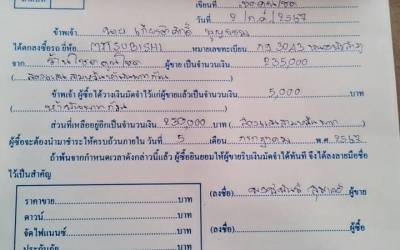 เขียนที่
วันที่ 2 ก.ค. 2567
ข้าพเจ้า นาย
ได้ตกลงซื้อรถ ยี่ห้อ MITSUBISHI หมายเลขทะเบียน
จาก ผู้ขาย เป็นจำนวนเงิน 235,000
(สองแสนสามหมื่นห้าพันบาทถ้วน)
ข้าพเจ้า ผู้ซื้อได้วางเงินมัดจำไว้แก่ผู้ขายแล้วเป็นจำนวนเงิน 5,000 บาท
(ห้าพันบาทถ้วน)
ส่วนที่เหลืออยู่อีกเป็นจำนวนเงิน 230,000 บาท (สองแสนสามหมื่นบาท
ผู้ซื้อจะต้องนำมาชำระให้ครบถ้วนภายใน วันที่ 5 เดือน กรกฎาคม พ.ศ. 2567
ถ้าพ้นจากกำหนดเวลาดังกล่าวนี้แล้ว ผู้ซื้อยินยอมให้ผู้ขายริบเงินมัดจำได้ทันที จึงได้ลงลายมือชื่อ
ไว้เป็นสำคัญ
ราคาขาย บาท (ลงชื่อ) ผู้ขาย
ดาวน์ บาท
จัดไฟแนนซ์ บาท (ลงชื่อ) ผู้ซื้อ
ประกันภัย บาท